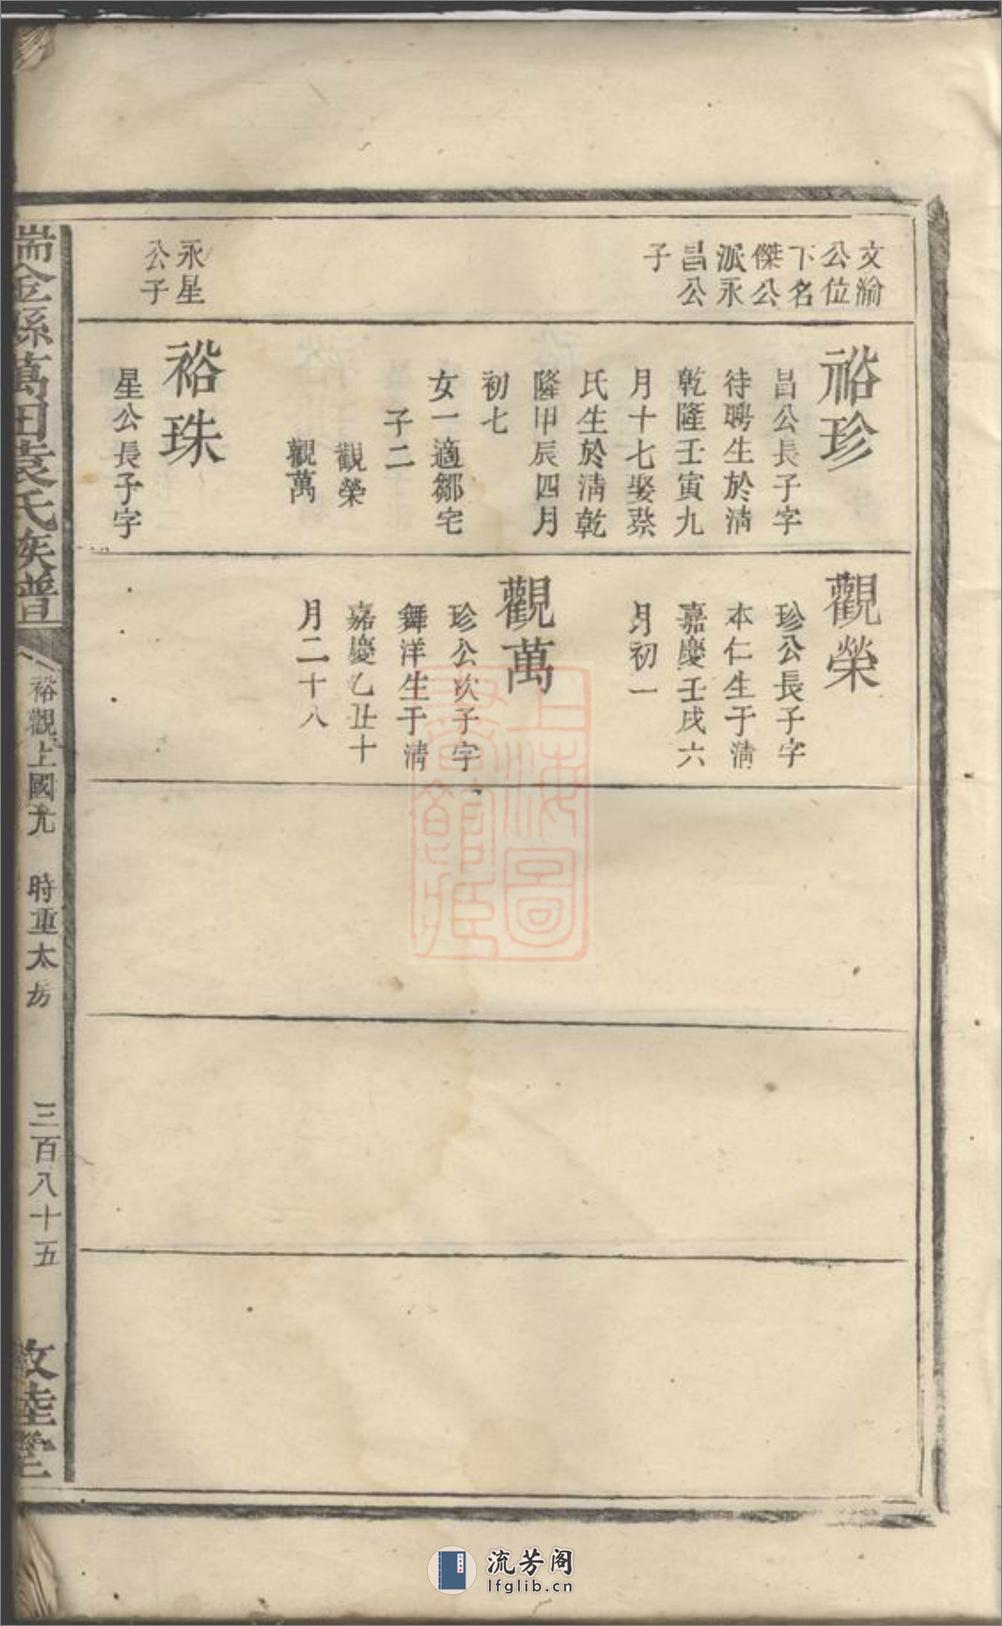 文渝
公位
下名
傑公
派永
昌公
子
永星
公子
裕珍
昌公長子字
待聘生於淸
乾隆壬寅九
月十七娶蔡
氏生於淸乾
隆甲辰四月
初七
女一適鄒宅
子二
觀榮
觀萬
裕珠
星公長子字
觀榮
珍公長子字
本仁生于淸
嘉慶壬戌六
月初一
觀萬
珍公次子字
舞洋生于淸
嘉慶乙丑十
月二十八
瑞金縣萬田袁氏族譜
裕觀上國光 時重太房
三百八十五
敦睦堂
上海圖
書館藏
流芳阁
lfglib.cn